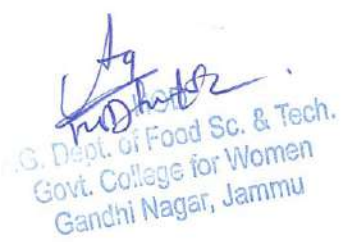 HOD
.G. Dept. of Food Sc. & Tech.
Govt. College for Women
Gandhi Nagar, Jammu